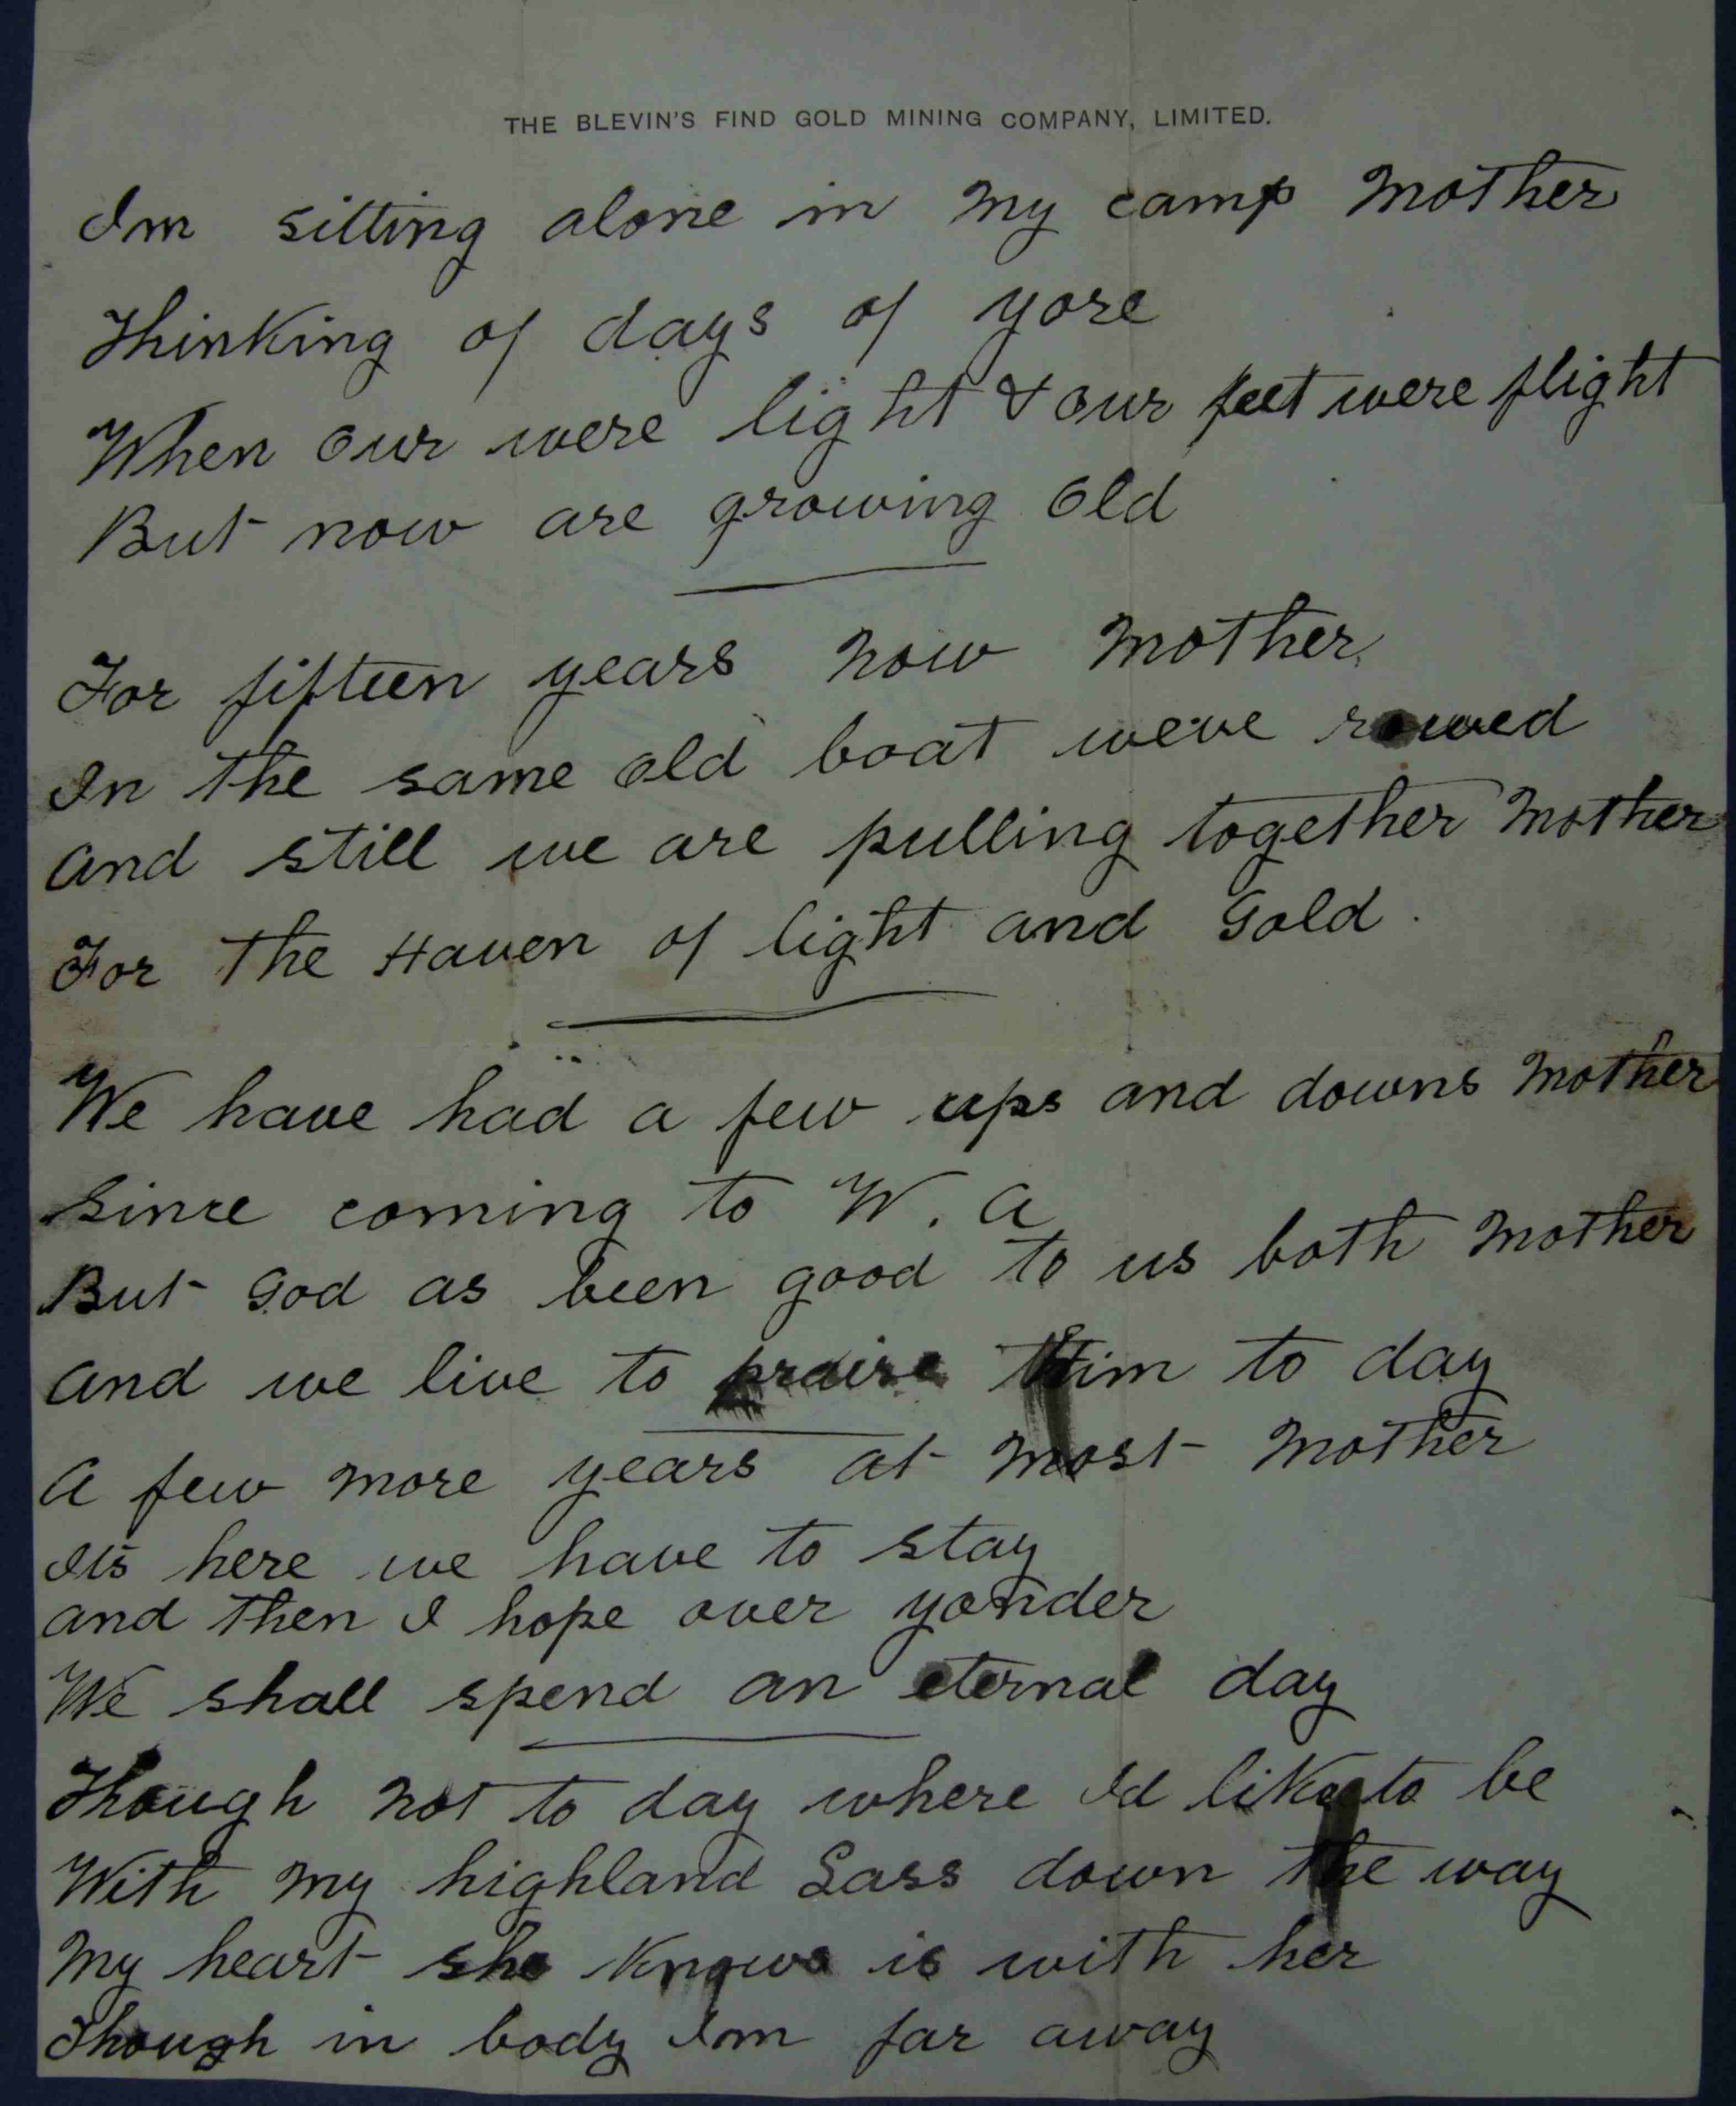 THE BLEVIN'S FIND GOLD MINING COMPANY, LIMITED.
Im sitting alone in my camp Mother
Thinking of days of yore
When our were light & our feet were flight
But now are growing old
For fifteen years now Mother
In the same old boat weve rowed
And still we are pulling together Mother
For the Haven of light and Gold.
We have had a few ups and downs Mother
Since coming to W. A
But God as been good to us both Mother
And we live to praise Him to day
A few more years at most Mother
Its here we have to stay
and then I hope over yonder
We shall spend an eternal day
Though not to day where Id like to be
With my highland Lass down the way
My heart she knows is with her
Though in body Im far away